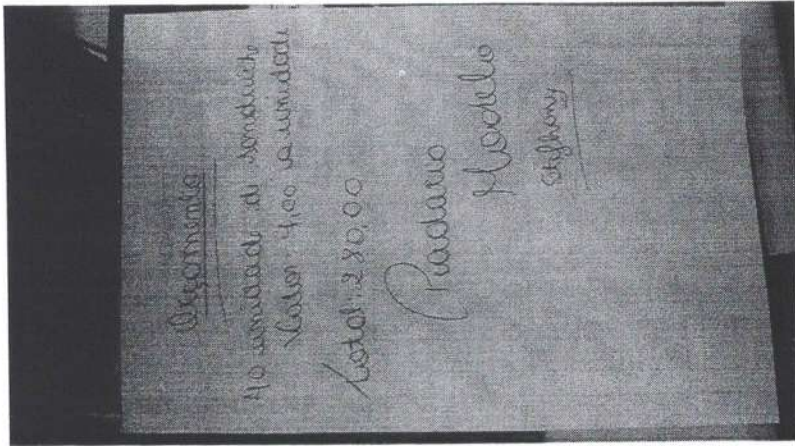 Orçamento
40 unidade de sanduiche
Valor 7,00 a unidade
Total: 280,00
Padaria
Modelo
Stephany